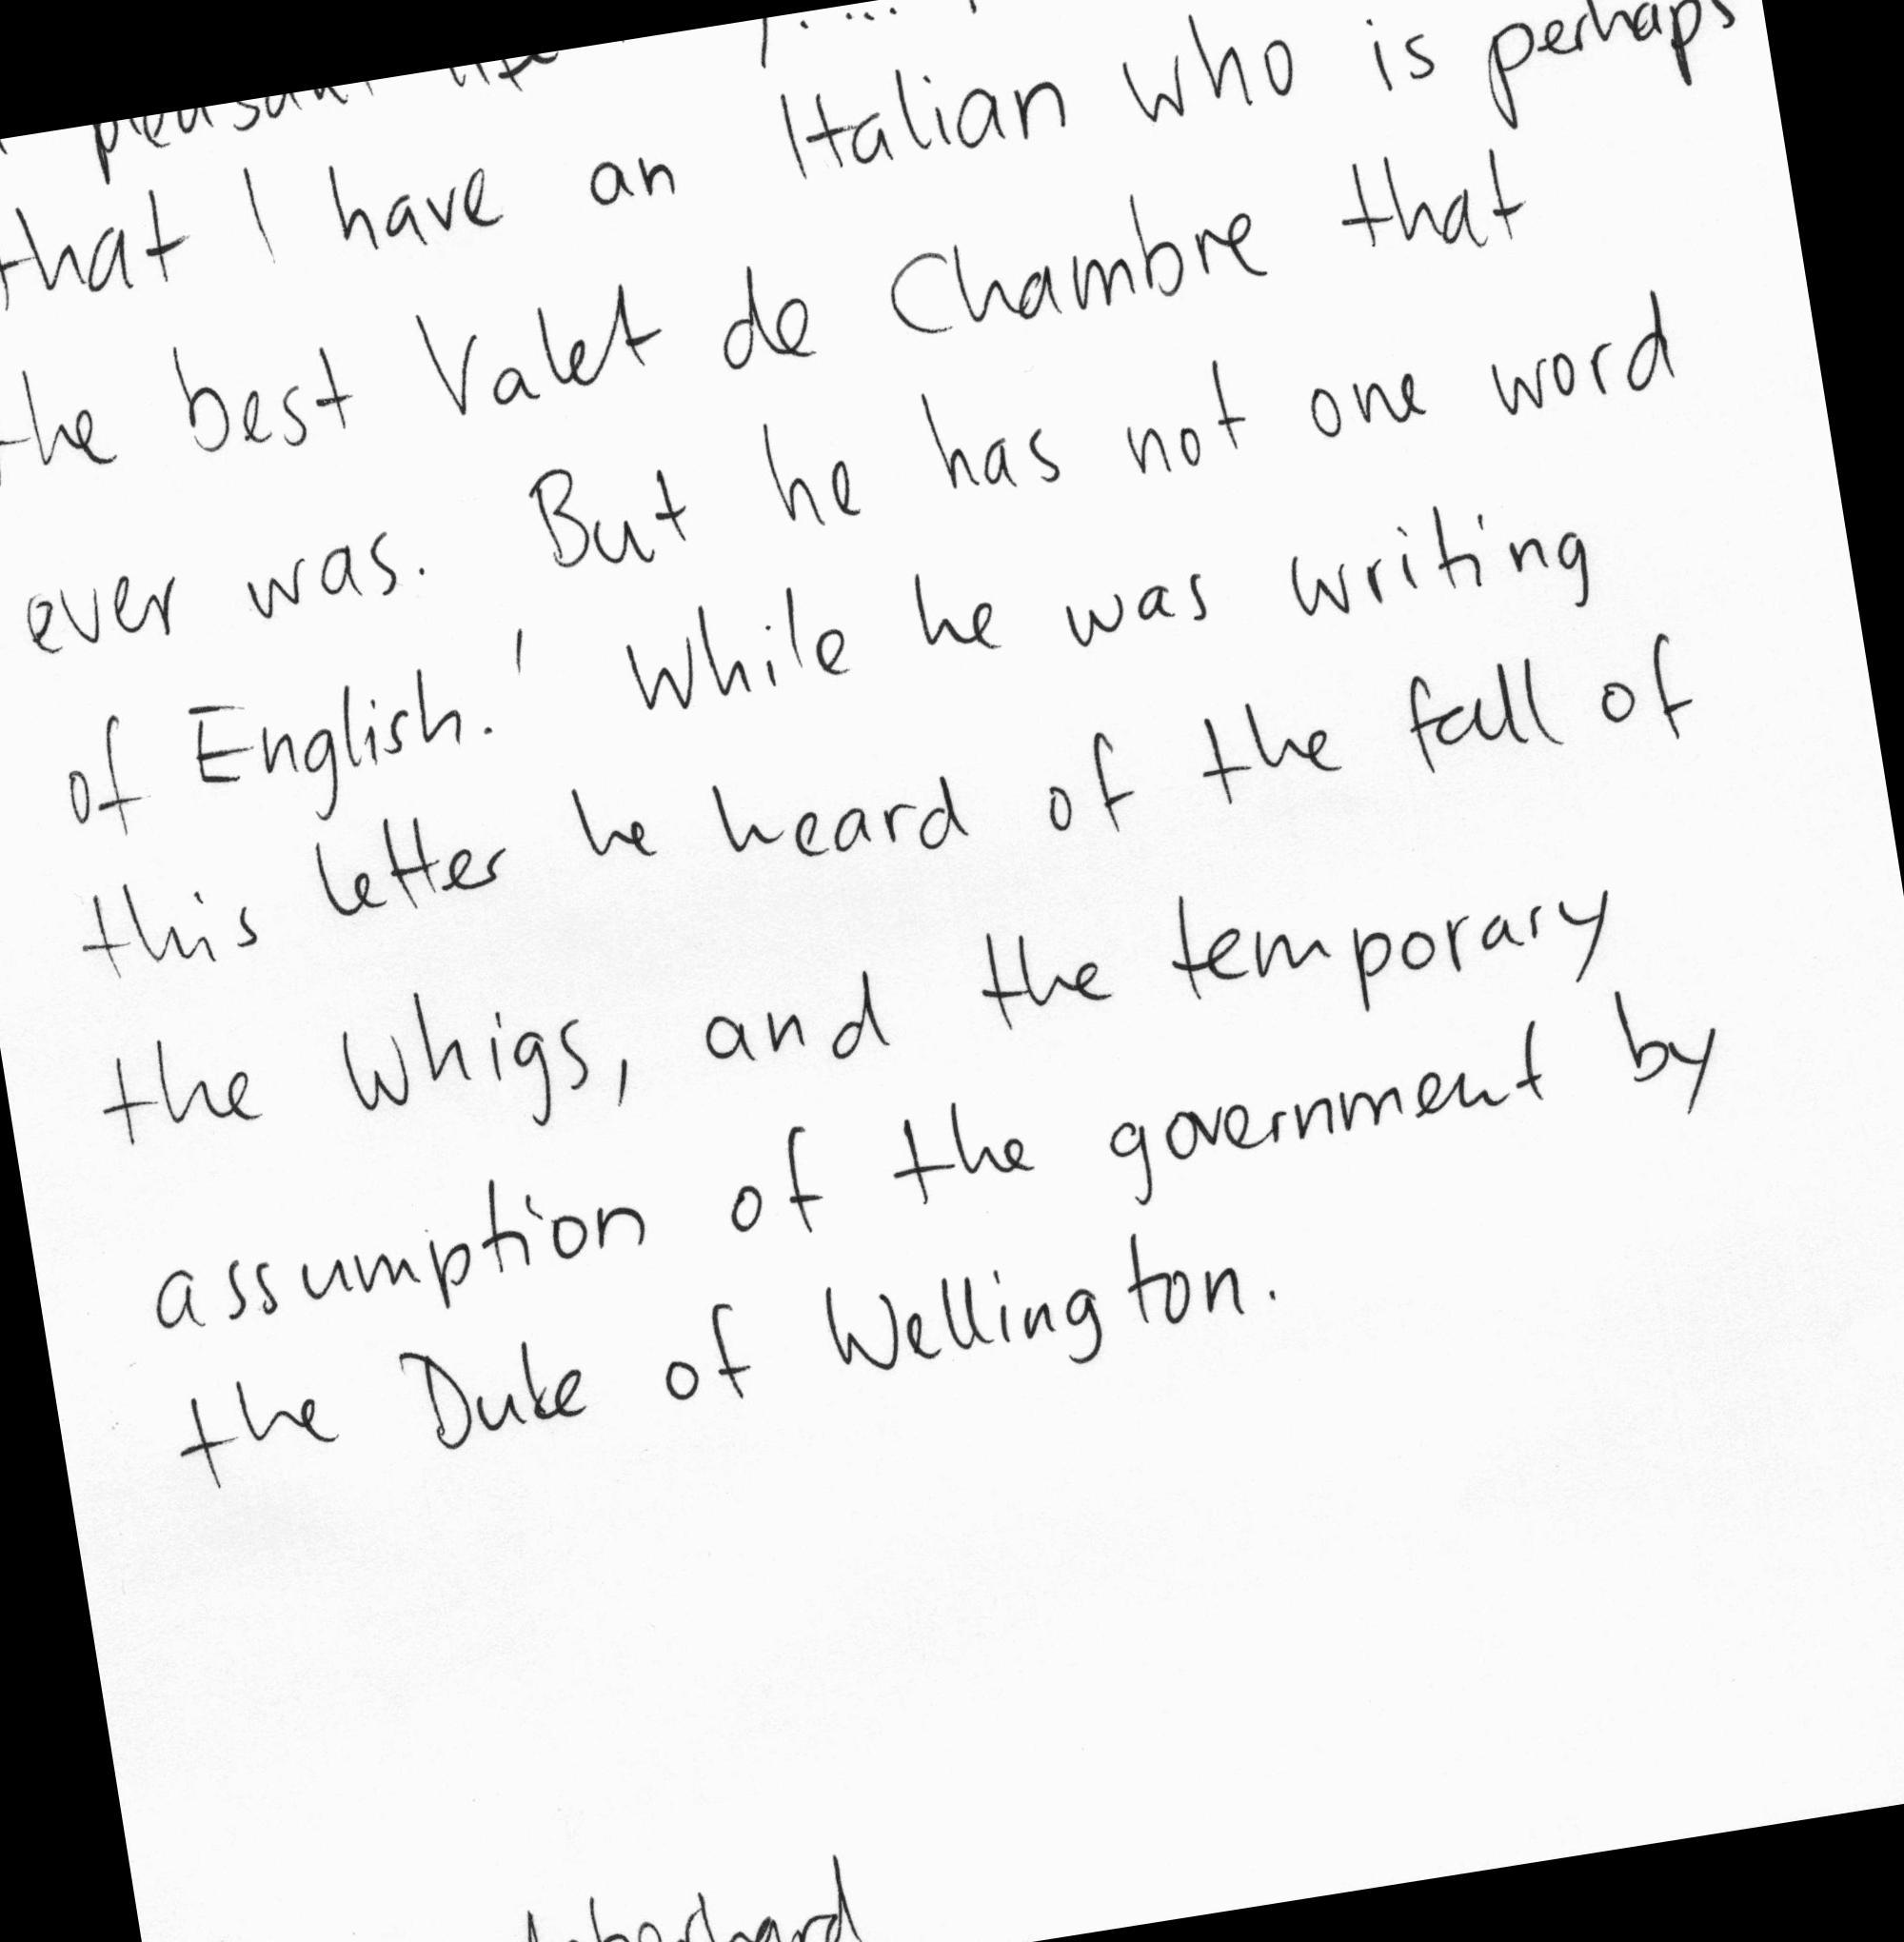 pleasant life
that I have an Italian who is perhaps
the best Valet de Chambre that
ever was. But he has not one word
of English.' While he was writing
this letter he heard of the fall of
the Whigs, and the temporary
assumption of the government by
the Duke of Wellington.